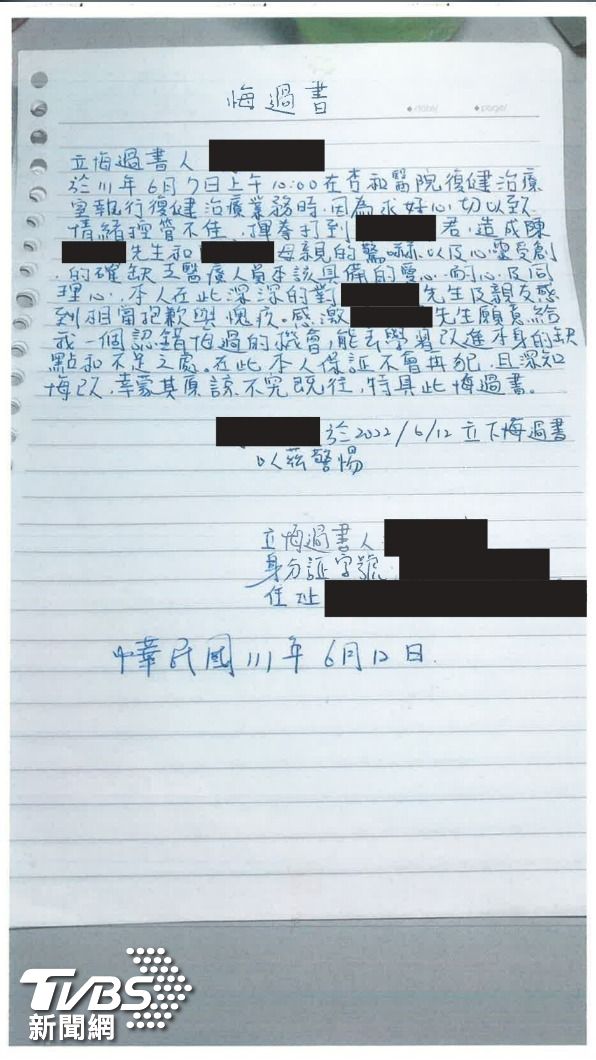 悔過書
date/ page/
立悔過書人
於111年6月7日上午10:00在杏和醫院復健治療
室執行復健治療業務時,因為求好心切以致
情緒控管不住,揮拳打到 君,造成陳
先生和 母親的驚嚇以及心靈受創
的確缺乏醫療人員本該具備的愛心、耐心及同
理心,本人在此深深的對 先生及親友感
到相當抱歉與愧疚。感激 先生願意給
我一個認錯悔過的機會,能去學習改進本身的缺
點和不足之處。在此本人保証不會再犯,且深知
悔改,幸蒙其原諒不究既往,特具此悔過書。
於2022/6/12 立下悔過書
以茲警惕
立悔過書人
身分証字號
住址
中華民國111年6月12日.
TVBS
新聞網